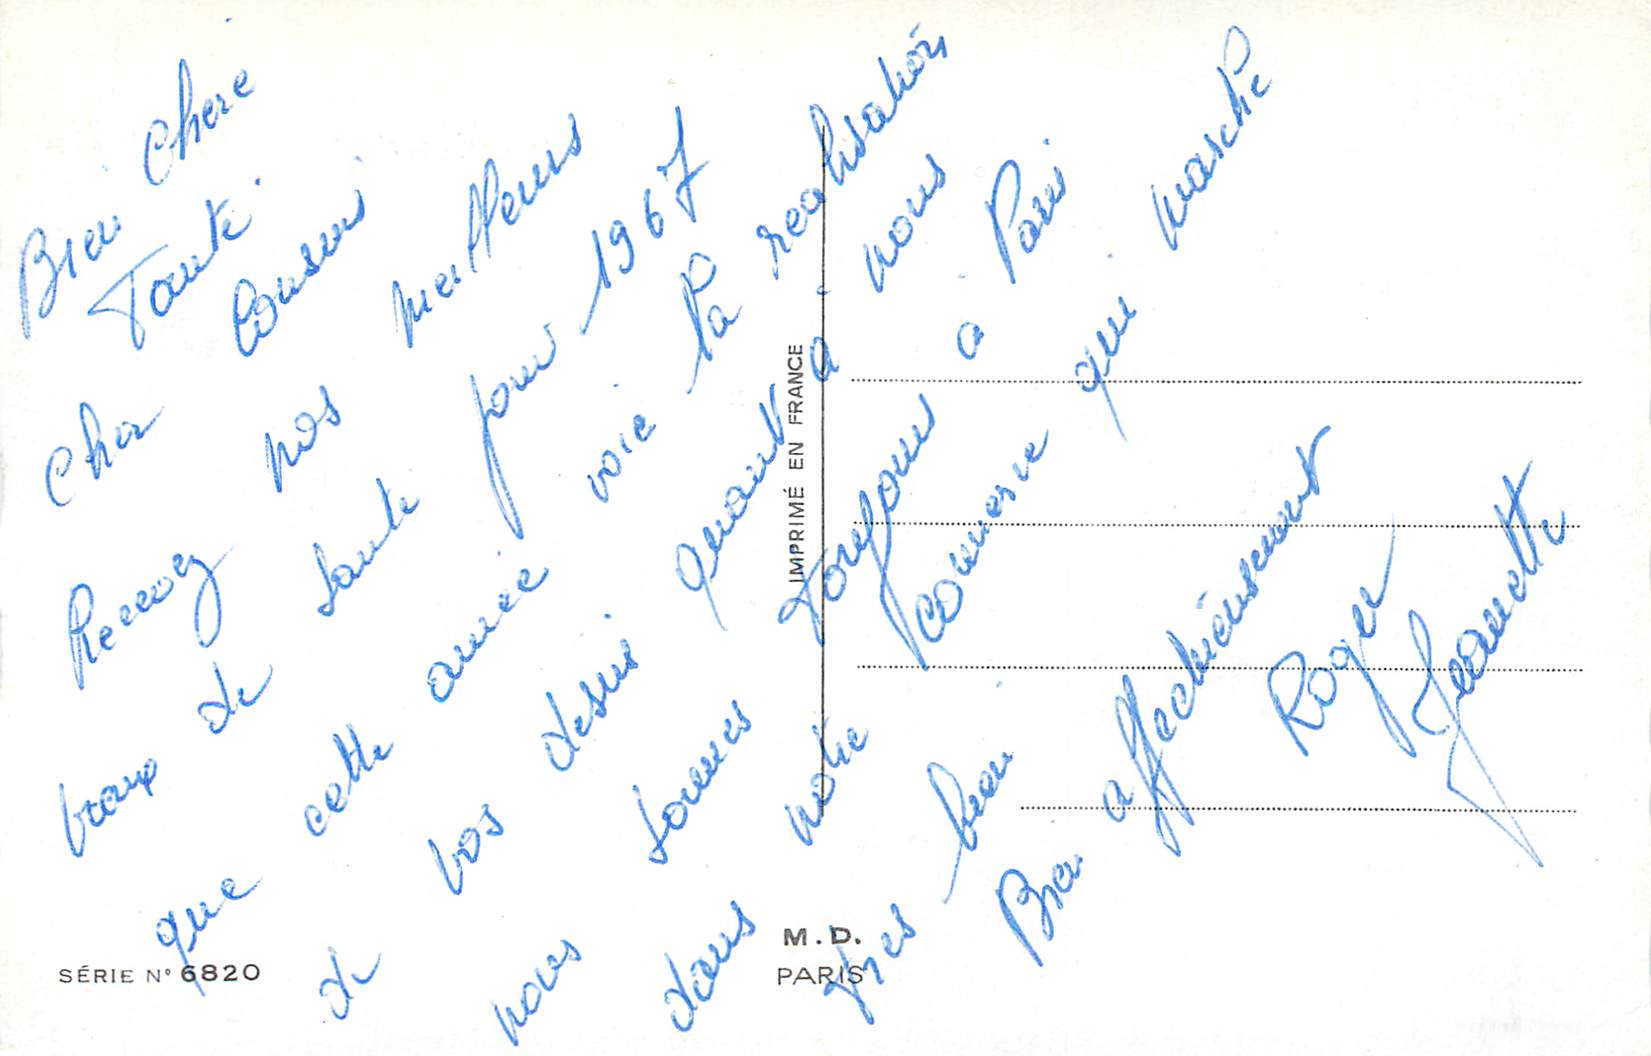 Bien Chère
Tante
Cher Cousins
Recevez nos meilleurs
vœux de santé pour 1967
que cette année voie la realisation
de vos desirs quant a nous
nous sommes toujours a Paris
dans notre commerce qui marche
tres bien
Bien affectueusement
Roger
Jeanette
IMPRIMÉ EN FRANCE
M.D.
PARIS
SÉRIE N° 6820